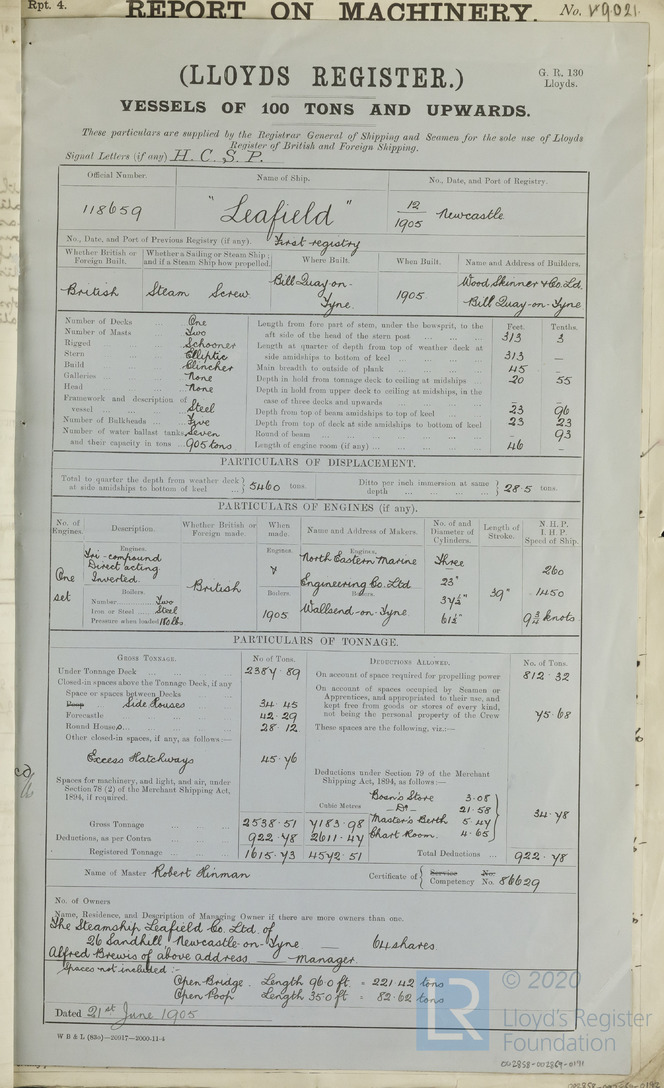 Rpt. 4.
REPORT ON MACHINERY.
No. 49021
(LLOYDS REGISTER.)
G. R. 130
Lloyds.
VESSELS OF 100 TONS AND UPWARDS.
These particulars are supplied by the Registrar General of Shipping and Seamen for the sole use of Lloyds
Register of British and Foreign Shipping.
Signal Letters (if any) H. C. S. P.
Official Number. Name of Ship. No., Date, and Port of Registry.
118659 "Leafield" 12/1905 Newcastle
No., Date, and Port of Previous Registry (if any). First registry
Whether British or Foreign Built. Whether a Sailing or Steam Ship; and if a Steam Ship how propelled. Where Built. When Built. Name and Address of Builders.
British Steam Screw Bill Quay-on-Tyne. 1905 Wood Skinner & Co. Ld. Bill Quay-on-Tyne
Number of Decks ... One
Number of Masts ... Two
Rigged ... Schooner
Stern ... Elliptic
Build ... Clincher
Galleries ... None
Head ... None
Framework and description of vessel ... Steel
Number of Bulkheads ... Five
Number of water ballast tanks Seven
and their capacity in tons ... 905 tons
Feet. Tenths.
Length from fore part of stem, under the bowsprit, to the aft side of the head of the stern post ... 313 3
Length at quarter of depth from top of weather deck at side amidships to bottom of keel ... 313 –
Main breadth to outside of plank ... 45 –
Depth in hold from tonnage deck to ceiling at midships ... 20 55
Depth in hold from upper deck to ceiling at midships, in the case of three decks and upwards ... – –
Depth from top of beam amidships to top of keel ... 23 96
Depth from top of deck at side amidships to bottom of keel 23 23
Round of beam ... – 93
Length of engine room (if any) ... 46 –
PARTICULARS OF DISPLACEMENT.
Total to quarter the depth from weather deck at side amidships to bottom of keel ... } 5460 tons.
Ditto per inch immersion at same depth ... } 28.5 tons.
PARTICULARS OF ENGINES (if any).
No. of Engines. Description. Whether British or Foreign made. When made. Name and Address of Makers. No. of and Diameter of Cylinders. Length of Stroke. N. H. P. I. H. P. Speed of Ship.
One set
Engines.
Tri-compound
Direct acting
Inverted.
Boilers.
Number ... Two
Iron or Steel ... Steel
Pressure when loaded 180 lbs.
British
Engines.
"
Boilers.
1905
Engines.
North Eastern Marine
Engineering Co. Ltd
Boilers.
Wallsend-on-Tyne.
Three
23"
37½"
61½"
39"
260
1450
9¾ knots
PARTICULARS OF TONNAGE.
GROSS TONNAGE. No of Tons. DEDUCTIONS ALLOWED. No. of Tons.
Under Tonnage Deck ... 2387.89
Closed-in spaces above the Tonnage Deck, if any
Space or spaces between Decks
Poop Side Houses ... 34.45
Forecastle ... 42.29
Round Houses ... 28.12
Other closed-in spaces, if any, as follows:—
Excess Hatchways 45.76
Spaces for machinery, and light, and air, under Section 78 (2) of the Merchant Shipping Act, 1894, if required.
Cubic Metres
Gross Tonnage ... 2538.51 7183.98
Deductions, as per Contra ... 922.78 2611.47
Registered Tonnage ... 1615.73 4572.51
On account of space required for propelling power 812.32
On account of spaces occupied by Seamen or Apprentices, and appropriated to their use, and kept free from goods or stores of every kind, not being the personal property of the Crew 75.68
These spaces are the following, viz.:—
Deductions under Section 79 of the Merchant Shipping Act, 1894, as follows:—
Bosn's Store 3.08
–Do– 21.58
Master's Berth 5.47
Chart Room. 4.65
34.78
Total Deductions ... 922.78
Name of Master Robert Hinman
Certificate of { Service No. Competency No. 86629
No. of Owners
Name, Residence, and Description of Managing Owner if there are more owners than one.
The Steamship Leafield Co. Ltd. of
26 Sandhill, Newcastle-on-Tyne — 64 shares
Alfred Brewis of above address — manager.
Spaces not included:-
Open Bridge. Length 96.0 ft. = 221.42 tons
Open Poop Length 35.0 ft = 82.62 tons
Dated 21st June 1905
W B & L (83o)—20917—2000-11-4
© 2020
LR
Lloyd's Register
Foundation
002858-002869-0191